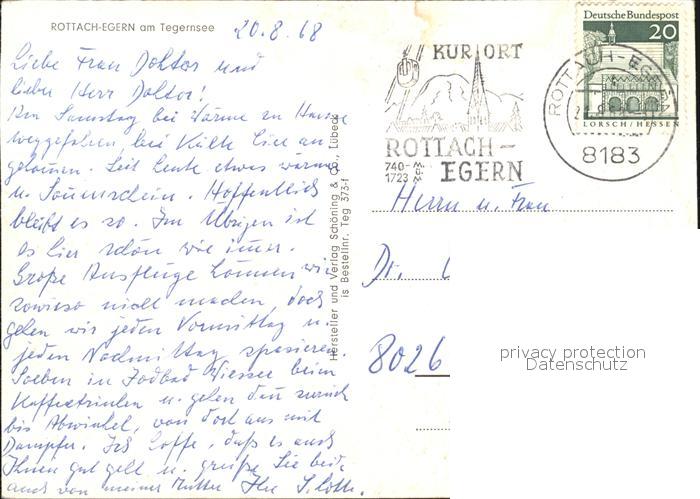 ROTTACH-EGERN am Tegernsee
20.8.68
Liebe Frau Doktor und
lieber Herr Doktor!
Am Samstag bei Wärme zu Hause
weggefahren, bei Kälte hier an-
gekommen. Seit heute etwas wärmer
u. Sonnenschein. Hoffentlich
bleibt es so. Im Übrigen ist
es hier schön wie immer.
Große Ausflüge können wir
sowieso nicht machen, doch
gehen wir jeden Vormittag u.
jeden Nachmittag spazieren.
Soeben in Jodbad Wiessee beim
Kaffeetrinken u. gehen dann zurück
bis Abwinkel, von dort aus mit
Dampfer. Ich hoffe, daß es auch
Ihnen gut geht u. grüße Sie beide
auch von meiner Mutter Ihr
Hersteller und Verlag Schöning & Co., Lübeck
is Bestellnr. Teg 373-f
KURORT
ROTTACH-
EGERN
740-
1723 m
Deutsche Bundespost
20
LORSCH/HESSEN
ROTTACH-EGERN
8183
Herrn u. Frau
Dr.
8026
privacy protection
Datenschutz